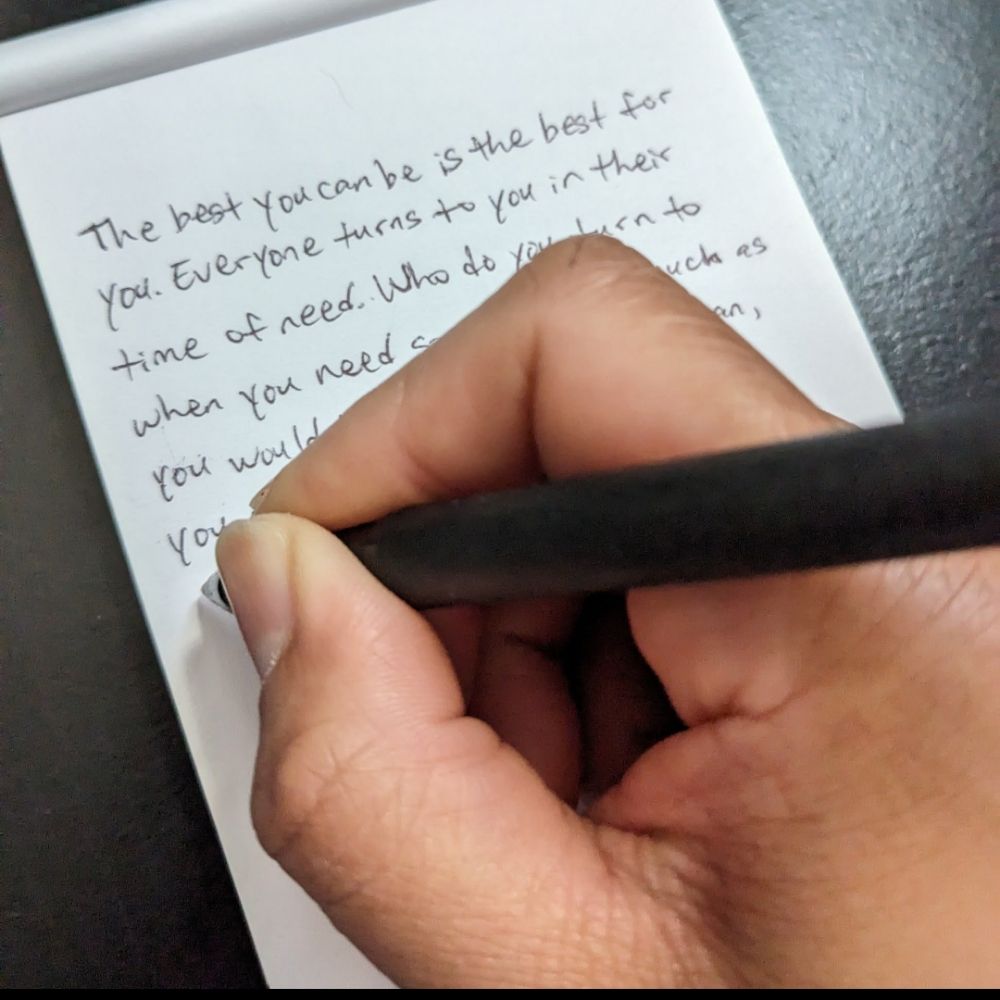 The best you can be is the best for
you. Everyone turns to you in their
time of need. Who do you turn to
when you need as
you would
you